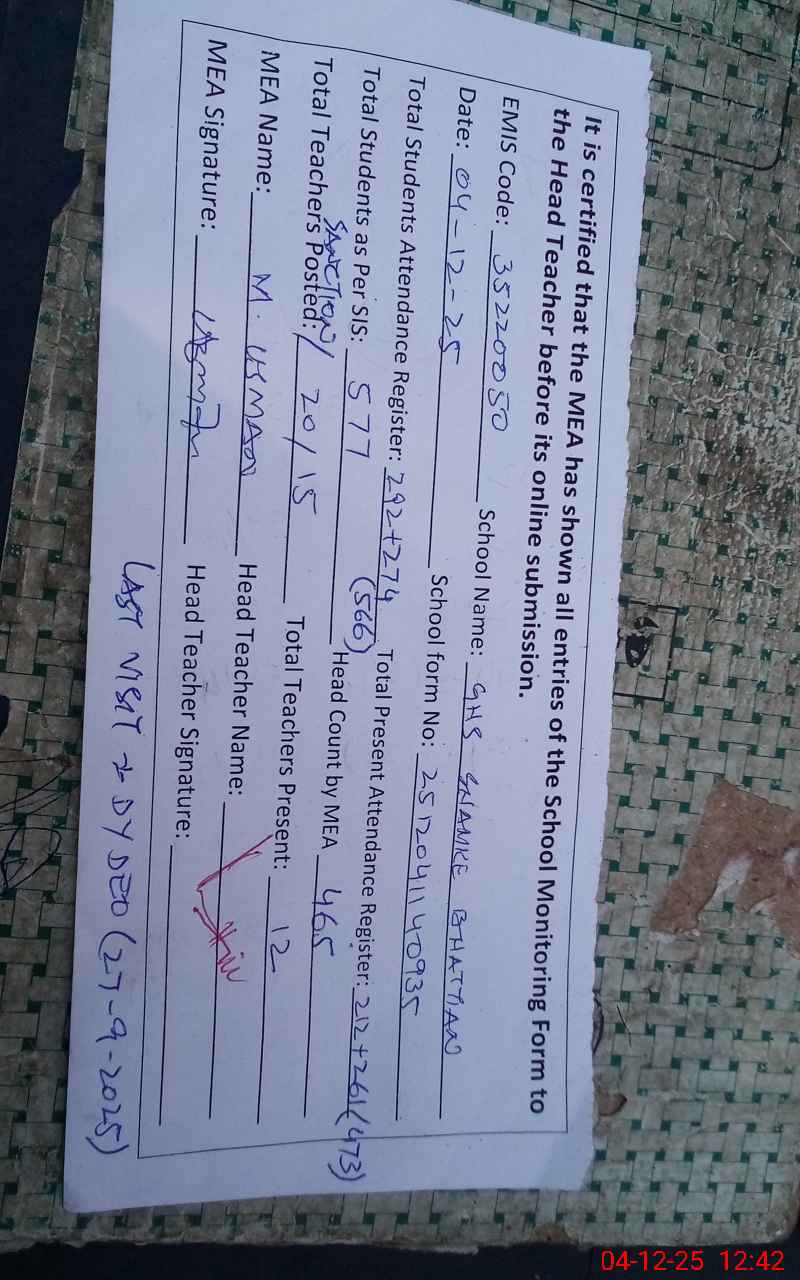 It is certified that the MEA has shown all entries of the School Monitoring Form to
the Head Teacher before its online submission.
EMIS Code: 35220050 School Name: GHS SHAMKE BHATTIAN
Date: 04-12-25 School form No: 251204114 0935
Total Students Attendance Register: 292+274 (566) Total Present Attendance Register: 212+261 (473)
Total Students as Per SIS: 577 Head Count by MEA 465
SANCTION/
Total Teachers Posted: 20/15 Total Teachers Present: 12
MEA Name: M. USMAN Head Teacher Name:
MEA Signature: Usman Head Teacher Signature:
LAST VISIT → DY DEO (27-9-2025)
04-12-25 12:42